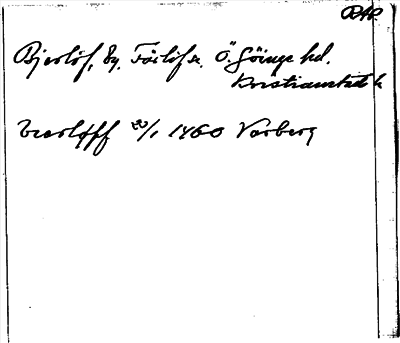 RAP
Bjerlöf, by. Färlöf sn. Ö. Göinge hd.
Kristianstads l.
Bierløff 20/1 1460 Varberg